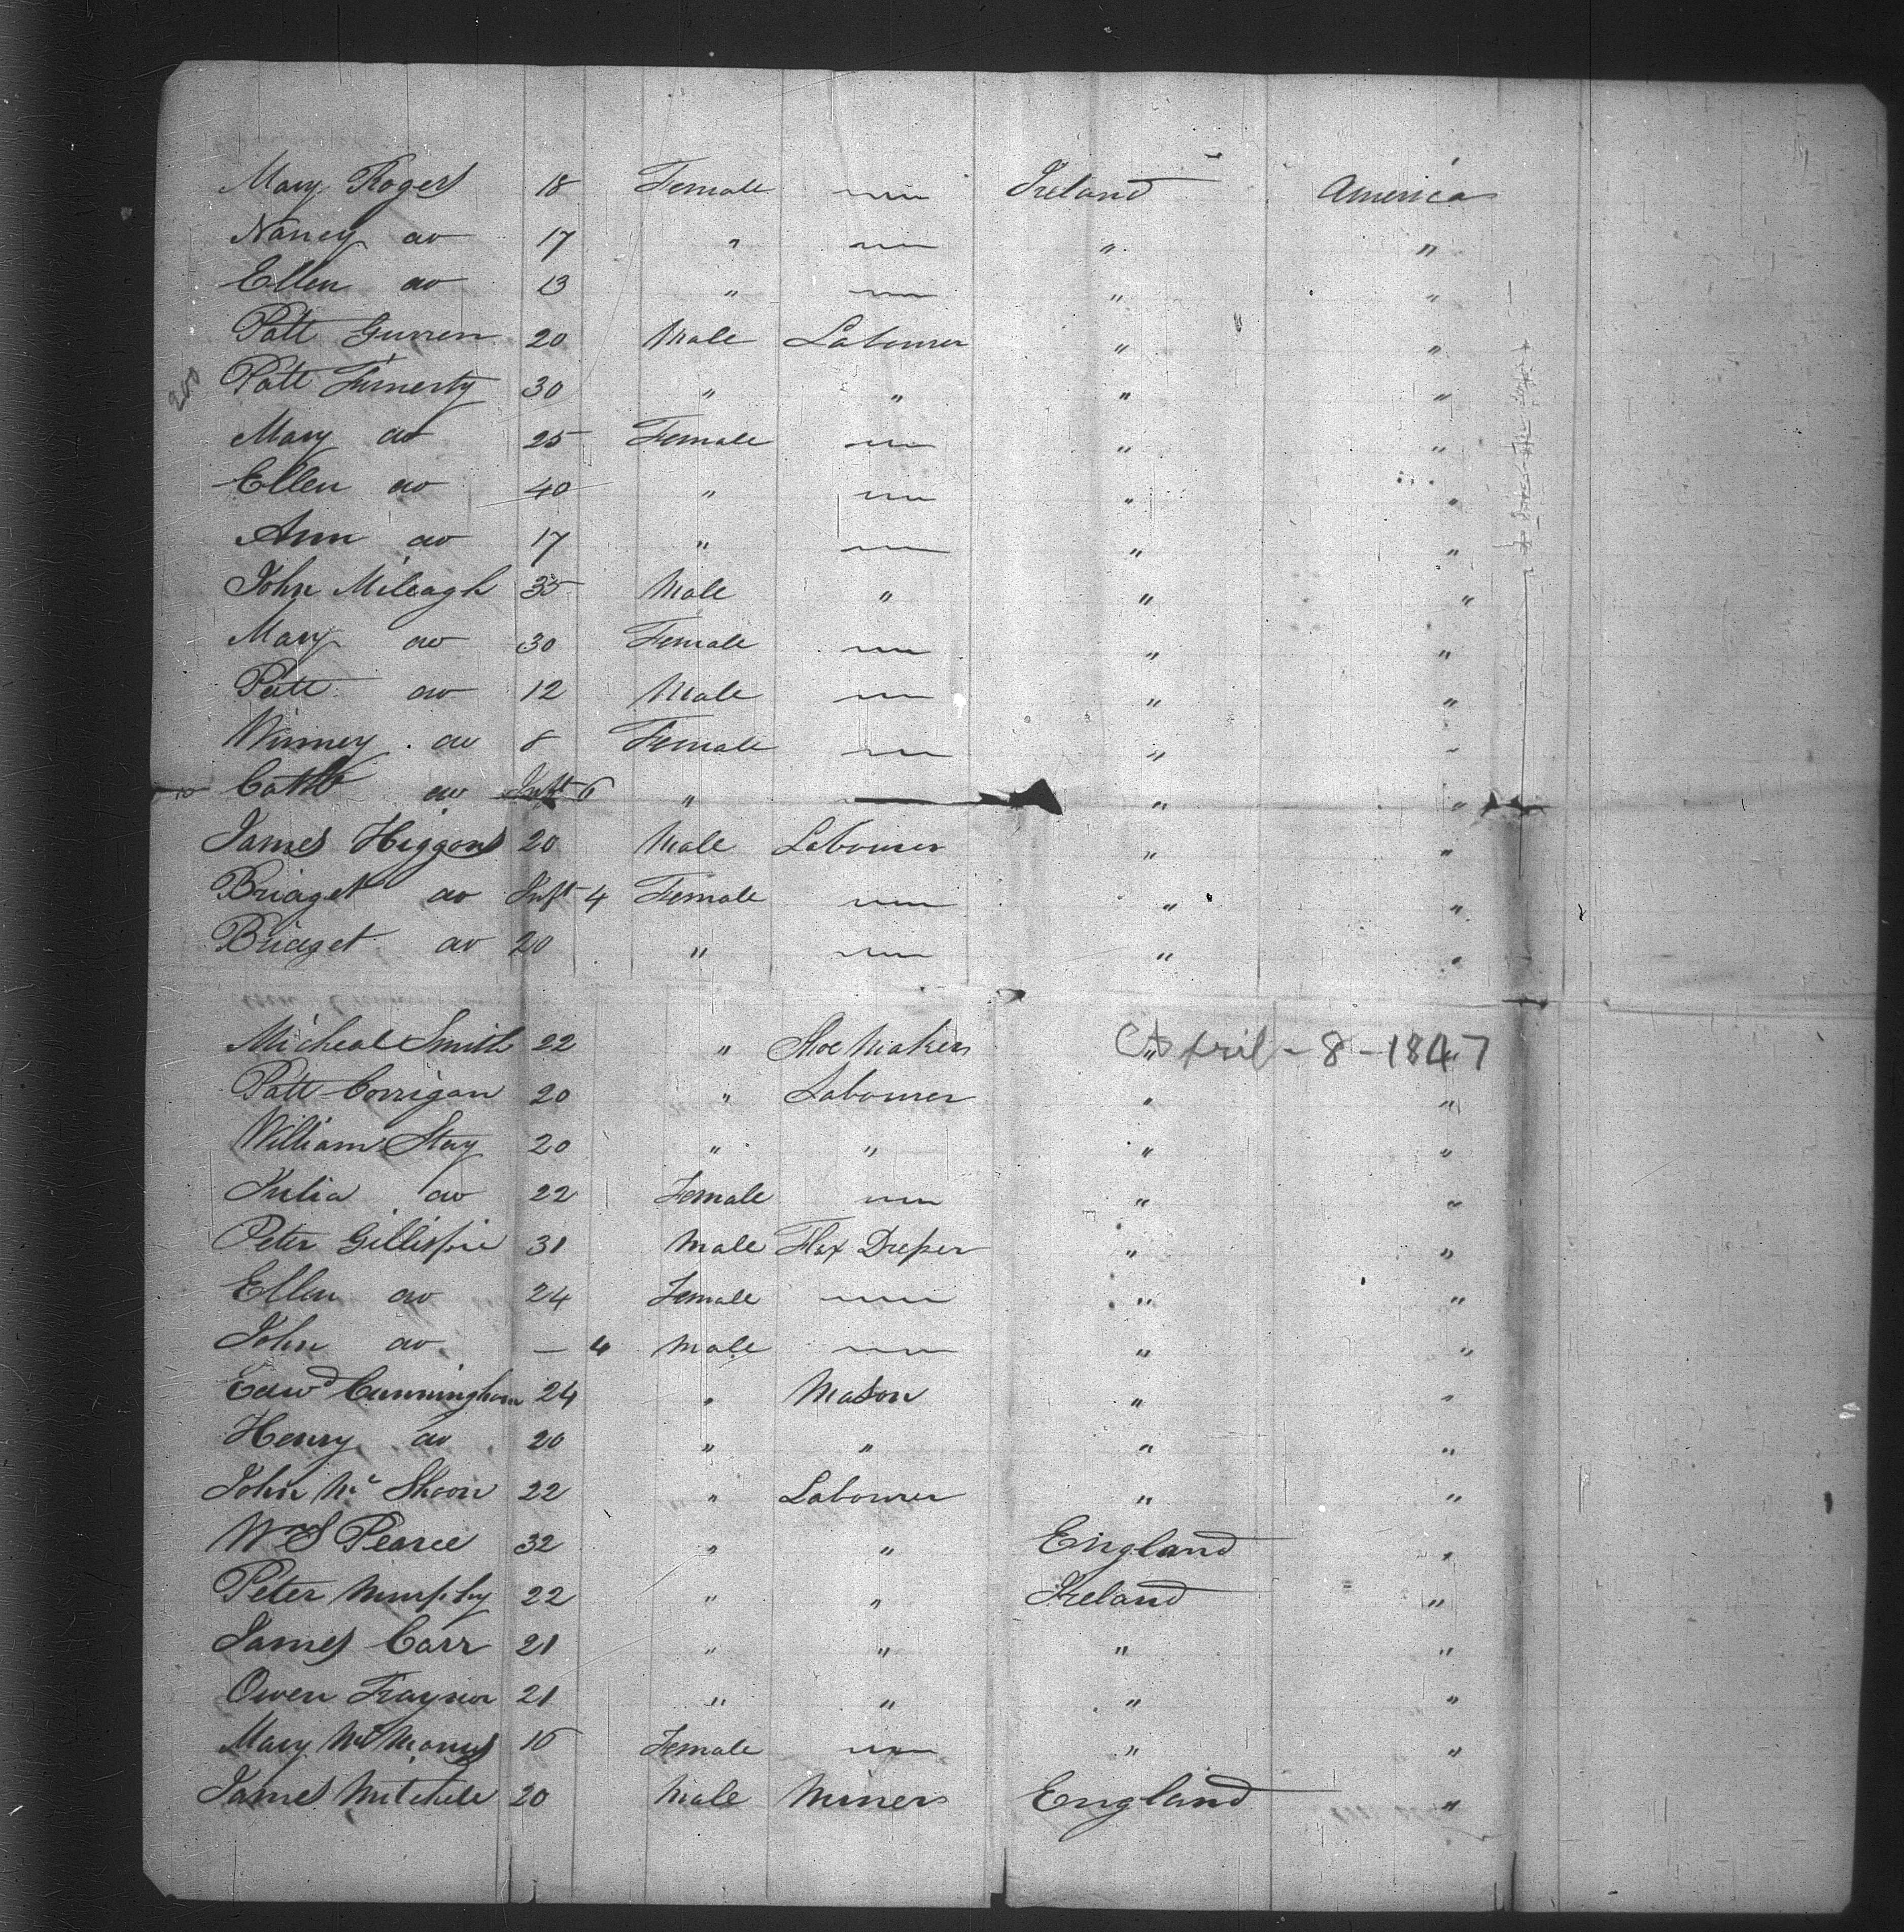 Mary Rogers 18 Female Ireland America
Nancy do 17 " " "
Ellen do 13 " " "
Patt Gurren 20 Male Labourer " "
200
Patt Finnerty 30 " " " "
Mary do 25 Female " "
Ellen do 40 " " "
Ann do 17 " " "
John Mileagh 35 Male " " "
Mary do 30 Female " "
Patt do 12 Male " "
Winney do 8 Female " "
Cath do Inft 6 " " "
James Higgons 20 Male Labourer " "
Bridget do Inft 4 Female " "
Bridget do 20 " " "
Micheal Smith 22 " Shoe Maker " "
April - 8 - 1847
Patt Corrigan 20 " Labourer " "
William Stay 20 " " " "
Julia do 22 Female " "
Peter Gillispie 31 Male Flax Dreper " "
Ellen do 24 Female " "
John do — 4 Male " "
Edwd Cunningham 24 " Mason " "
Henry do 20 " " " "
John Mc Shoon 22 " Labourer " "
Wm S Pearce 32 " " England "
Peter Murphy 22 " " Ireland "
James Carr 21 " " " "
Owen Traynor 21 " " " "
Mary McManus 16 Female " "
James Mitchell 20 Male Miner England "